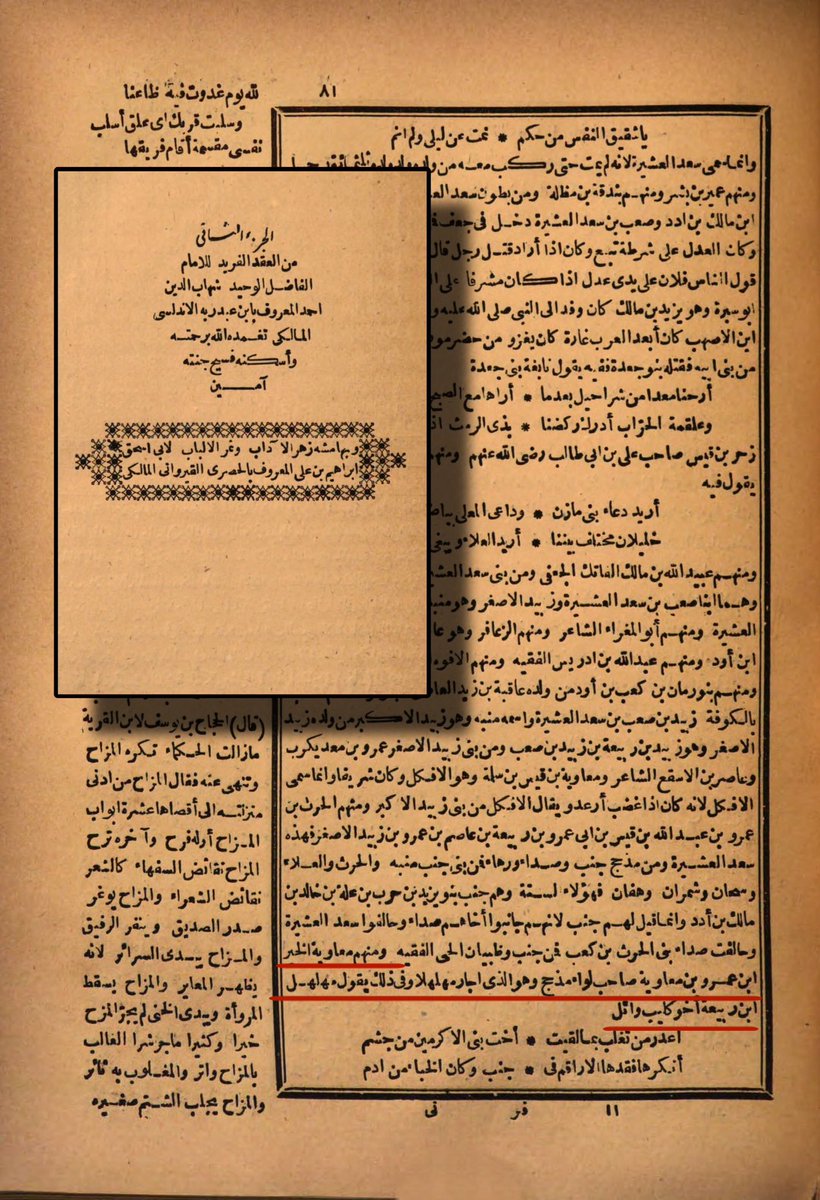 ٨١
لله يوم غدوت فيه ظاعنا
وسلبت قربك اى علق أسلب
نفسى مقسمة أقام فريقها
ياشقيق النفس من حكم * نمت عن ليلى ولم انم
وانما سمى سعد العشيرة لانه لم يمت حتى ركب معه من ولده
ومنهم عمير بن بشر ومنهم بندقة بن مظلة ومن بطون سعد
ابن مالك بن ادد وصعب بن سعد العشيرة دخل فى
وكان العدل على شرطة تبع وكان اذا أراد قتل رجل قال
قول الناس فلان على يدى عدل اذا كان مشرفا على
ابو سبرة وهو يزيد بن مالك كان وفد الى النبى صلى الله عليه
ابن الاصهب كان أبعد العرب غارة كان يغزو من حضرموت
من بنى ابيه فقتله بنو جعدة ففيه يقول نابغة بنى جعدة
أرحنا معدا من شراحيل بعدما * أراها مع الصبح
وعلقمة الحراب أدرك ركضنا * بذى الرمث
زحر بن قيس صاحب على بن ابى طالب رضى الله عنهم
يقول فيه
أريد دعاء بنى مازن * وداعى المعلى
خليلان مختلف بيننا * أريد العلاء
ومنهم عبيد الله بن مالك الفاتك الجعفى ومن بنى سعد
وهما ابنا صعب بن سعد العشيرة وزبيد الاصغر وهو
العشيرة ومنهم أبو المغراء الشاعر ومنهم الزعافر وهو
ابن أود ومنهم عبدالله بن ادريس الفقيه ومنهم الافوه
ومنهم بنو رمان بن كعب بن أود من ولده عافية بن يزيد
بالكوفة زبيد بن صعب بن سعد العشيرة واسمه منبه وهو زبيد الاكبر من ولده زبيد
الاصغر وهو زبيد بن ربيعة بن زبيد بن صعب ومن بنى زبيد الاصغر عمرو بن معد يكرب
وعاصر بن الاسقع الشاعر ومعاوية بن قيس بن سلمة وهو الافكل وكان شريفا وانما سمى
الافكل لانه كان اذا غضب أرعد ويقال الافكل من بنى زبيد الاكبر ومنهم الحرث بن
عمرو بن عبد الله بن قيس بن ابى عمرو بن ربيعة بن عاصم بن عمرو بن زبيد الاصغر فهذه
سعد العشيرة ومن مذحج جنب وصداء ورهاء فمن بنى جنب منبه والحرث والعلاء
وسمعان وشمران وهفان فهؤلاء لستة وهم جنب بنو يزيد بن حرب بن علة بن خالد بن
مالك بن أدد وانما قيل لهم جنب لانهم جانبوا أخاهم صداء وحالفوا سعد العشيرة
وحالفت صداء بنى الحرث بن كعب فمن جنب وظبيان الجى الفقيه ومنهم معاوية الخير
ابن عمرو بن معاوية صاحب لواء مذحج وهو الذى اجار مهلهلا وفى ذلك يقول مهلهل
ابن ربيعة اخو كليب وائل
اعذر من تغلب بمالقيت * أخت بنى الاكرمين من جشم
أنكرها فقدها الاراقم فى * جنب وكان الخباء من ادم
١١ فر نى
الجزء الثانى
من العقد الفريد للامام
الفاضل الوحيد شهاب الدين
احمد المعروف بابن عبدربه الاندلسى
المالكى تغمده الله برحمته
وأسكنه فسيح جنته
آمين
وبهامشه زهر الآداب وثمر الالباب لابى اسحق
ابراهيم بن على المعروف بالحصرى القيروانى المالكى
(قال) الحجاج بن يوسف لابن القرية
مازالت الحكماء تكره المزاح
وتنهى عنه فقال المزاح من ادنى
منزلته الى أقصاها عشرة ابواب
المزاح أوله فرح وآخره ترح
المزاح نقائض السفهاء كالشعر
نقائض الشعراء والمزاح يوغر
صدر الصديق وينفر الرفيق
والمزاح يبدى السرائر لانه
يظهر المعاير والمزاح يسقط
المروأة ويبدى الخنى لم يجز المزح
خيرا وكثيرا ماجر شرا الغالب
بالمزاح واتر والمغلوب به ثائر
والمزاح يجلب الشتم صغيره